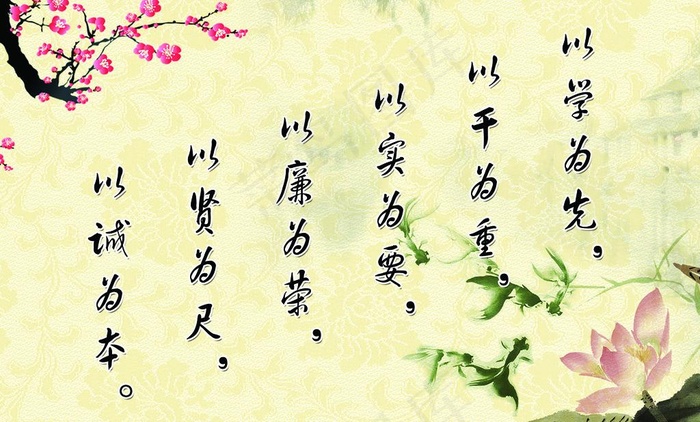 以学为先，
以干为重，
以实为要，
以廉为荣，
以贤为尺，
以诚为本。